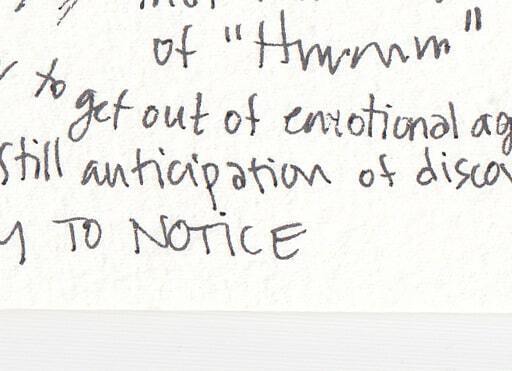 of "Hmmmm"
to get out of emotional ag
Still anticipation of disco
y TO NOTICE